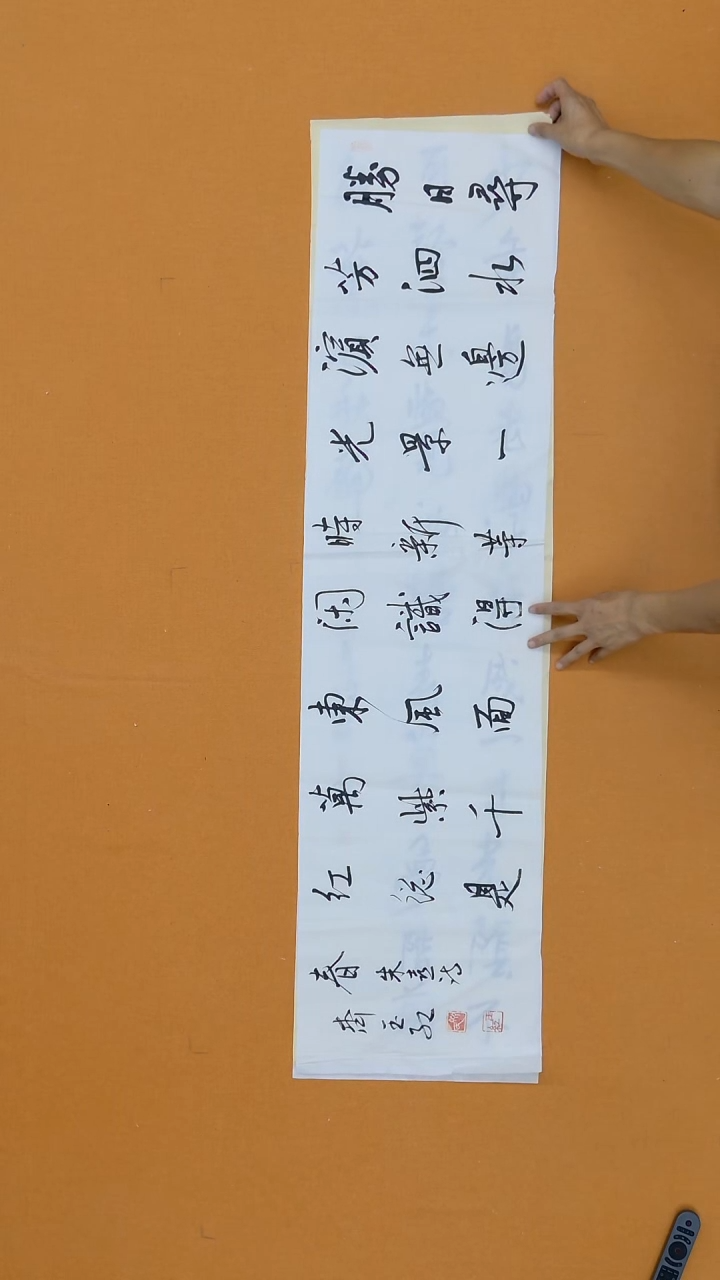 勝日尋
芳泗水
濱無邊
光景一
時新等
闲識得
東風面
萬紫千
紅總是
春 朱熹詩